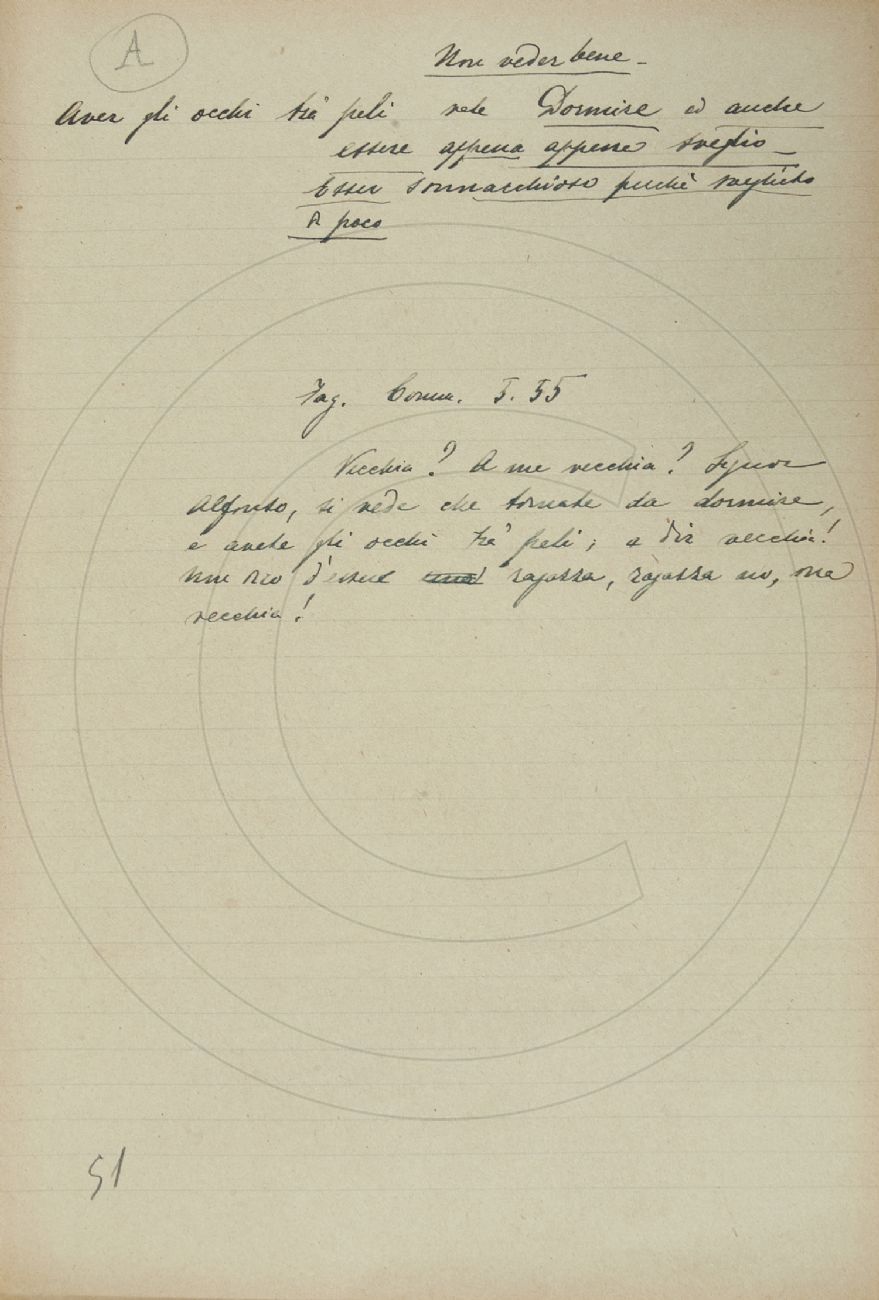 A
Non veder bene -
Aver gli occhi trà peli vale Dormire ed anche
essere appena appena sveglio -
Esser sonnacchioso perchè svegliato
A poco
Fag. Comm. 5. 55
Vecchia? A me vecchia? Signor
Alfonso, si vede che tornate da dormire,
e avete gli occhi trà peli; a dir vecchia!
d'essere ragazza, ragazza no, ma
vecchia!
51